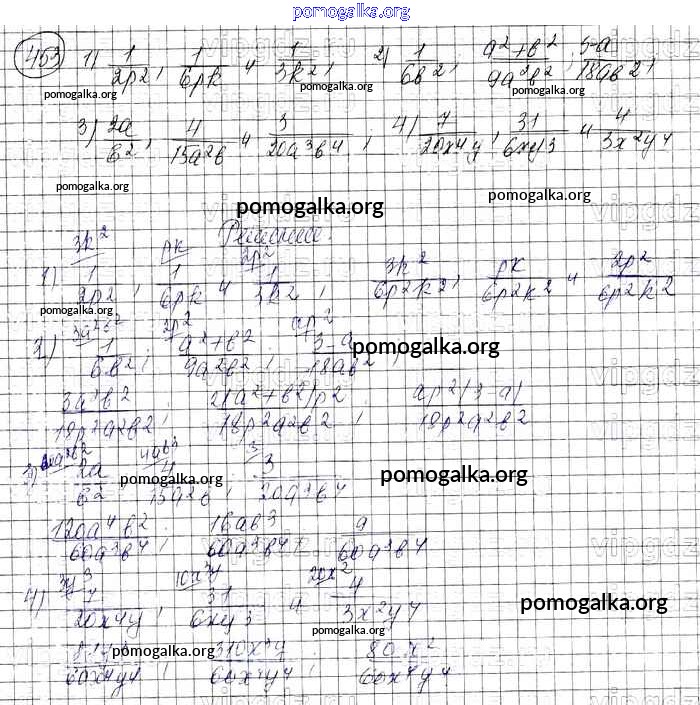 pomogalka.org
453 1) 1/2p², 1/6pk и 1/3k²; 2) 1/6в², a²+в²/9a²в², 3-a/18aв²;
pomogalka.org pomogalka.org pomogalka.org
3) 2a/в², 4/15a²в и 3/20a³в⁴; 4) 7/20x⁴y, 31/6xy³ и 4/3x²y⁴
pomogalka.org pomogalka.org
pomogalka.org
Решение.
3k² pk 2p²
1) 1/2p², 1/6pk и 1/3k²; 3k²/6p²k², pk/6p²k² и 2p²/6p²k²
pomogalka.org
2) 1/6в², a²+в²/9a²в², 3-a/18aв²
pomogalka.org
3a²в²/18p²a²в², 2(a²+в²)p²/18p²a²в², ap²(3-a)/18p²a²в²
3) 2a/в², 4/15a²в, 3/20a³в⁴
pomogalka.org pomogalka.org
120a⁴в²/60a³в⁴, 16aв³/60a³в⁴, 9/60a³в⁴
3y³ 10x³y 20x²
4) 7/20x⁴y, 31/6xy³ и 4/3x²y⁴
pomogalka.org pomogalka.org
310x³y/60x⁴y⁴, 80x²/60x⁴y⁴
pomogalka.org pomogalka.org